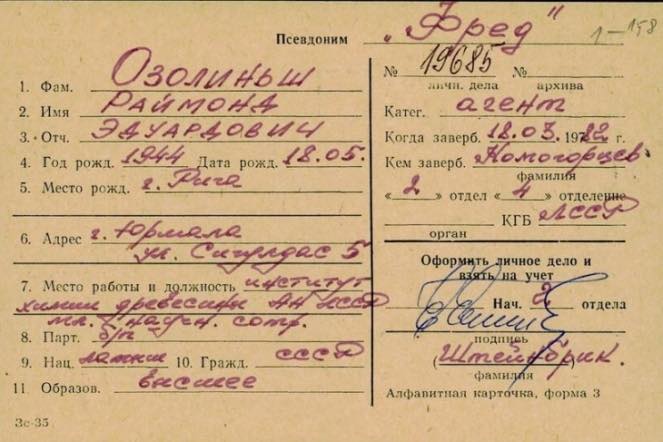 Псевдоним „Фред"
1. Фам. Озолиньш
2. Имя Раймонд
3. Отч. Эдуардович
4. Год рожд. 1944 Дата рожд. 18.05.
5. Место рожд. г. Рига
6. Адрес г. Юрмала
ул. Сигулдас 5
7. Место работы и должность институт
химии древесины АН ЛССР
мл. научн. сотр.
8. Парт. б/п
9. Нац. латыш 10. Гражд. СССР
11. Образов. высшее
Зс-35
1-158
№ 19685 №
личн. дела архива
Катег. агент
Когда заверб. 18.03.1982 г.
Кем заверб. Номогорцев
фамилия
«2» отдел «4» отделение
КГБ ЛССР
орган
Оформить личное дело и
взять на учет
Нач. 2 отдела
подпись
(Штейнбрик.)
фамилия
Алфавитная карточка, форма 3